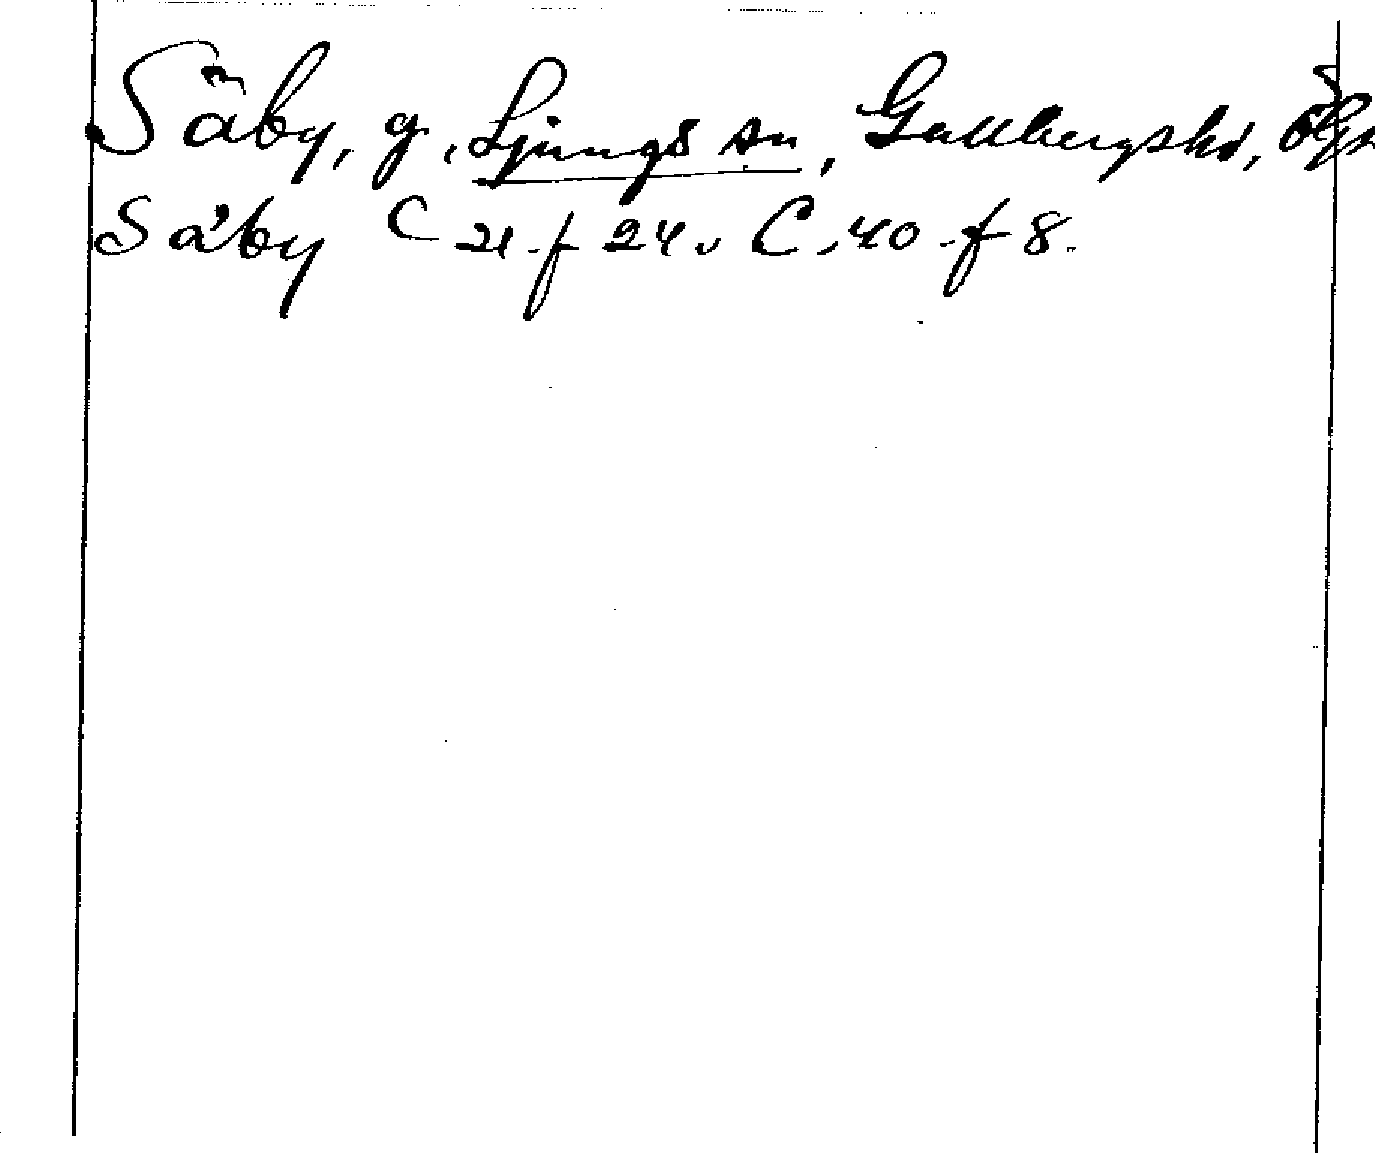 Säby, g, Ljungs sn, Gullbergs hd, Ögl
Säby C 21 f 24 v C. 40 f 8.